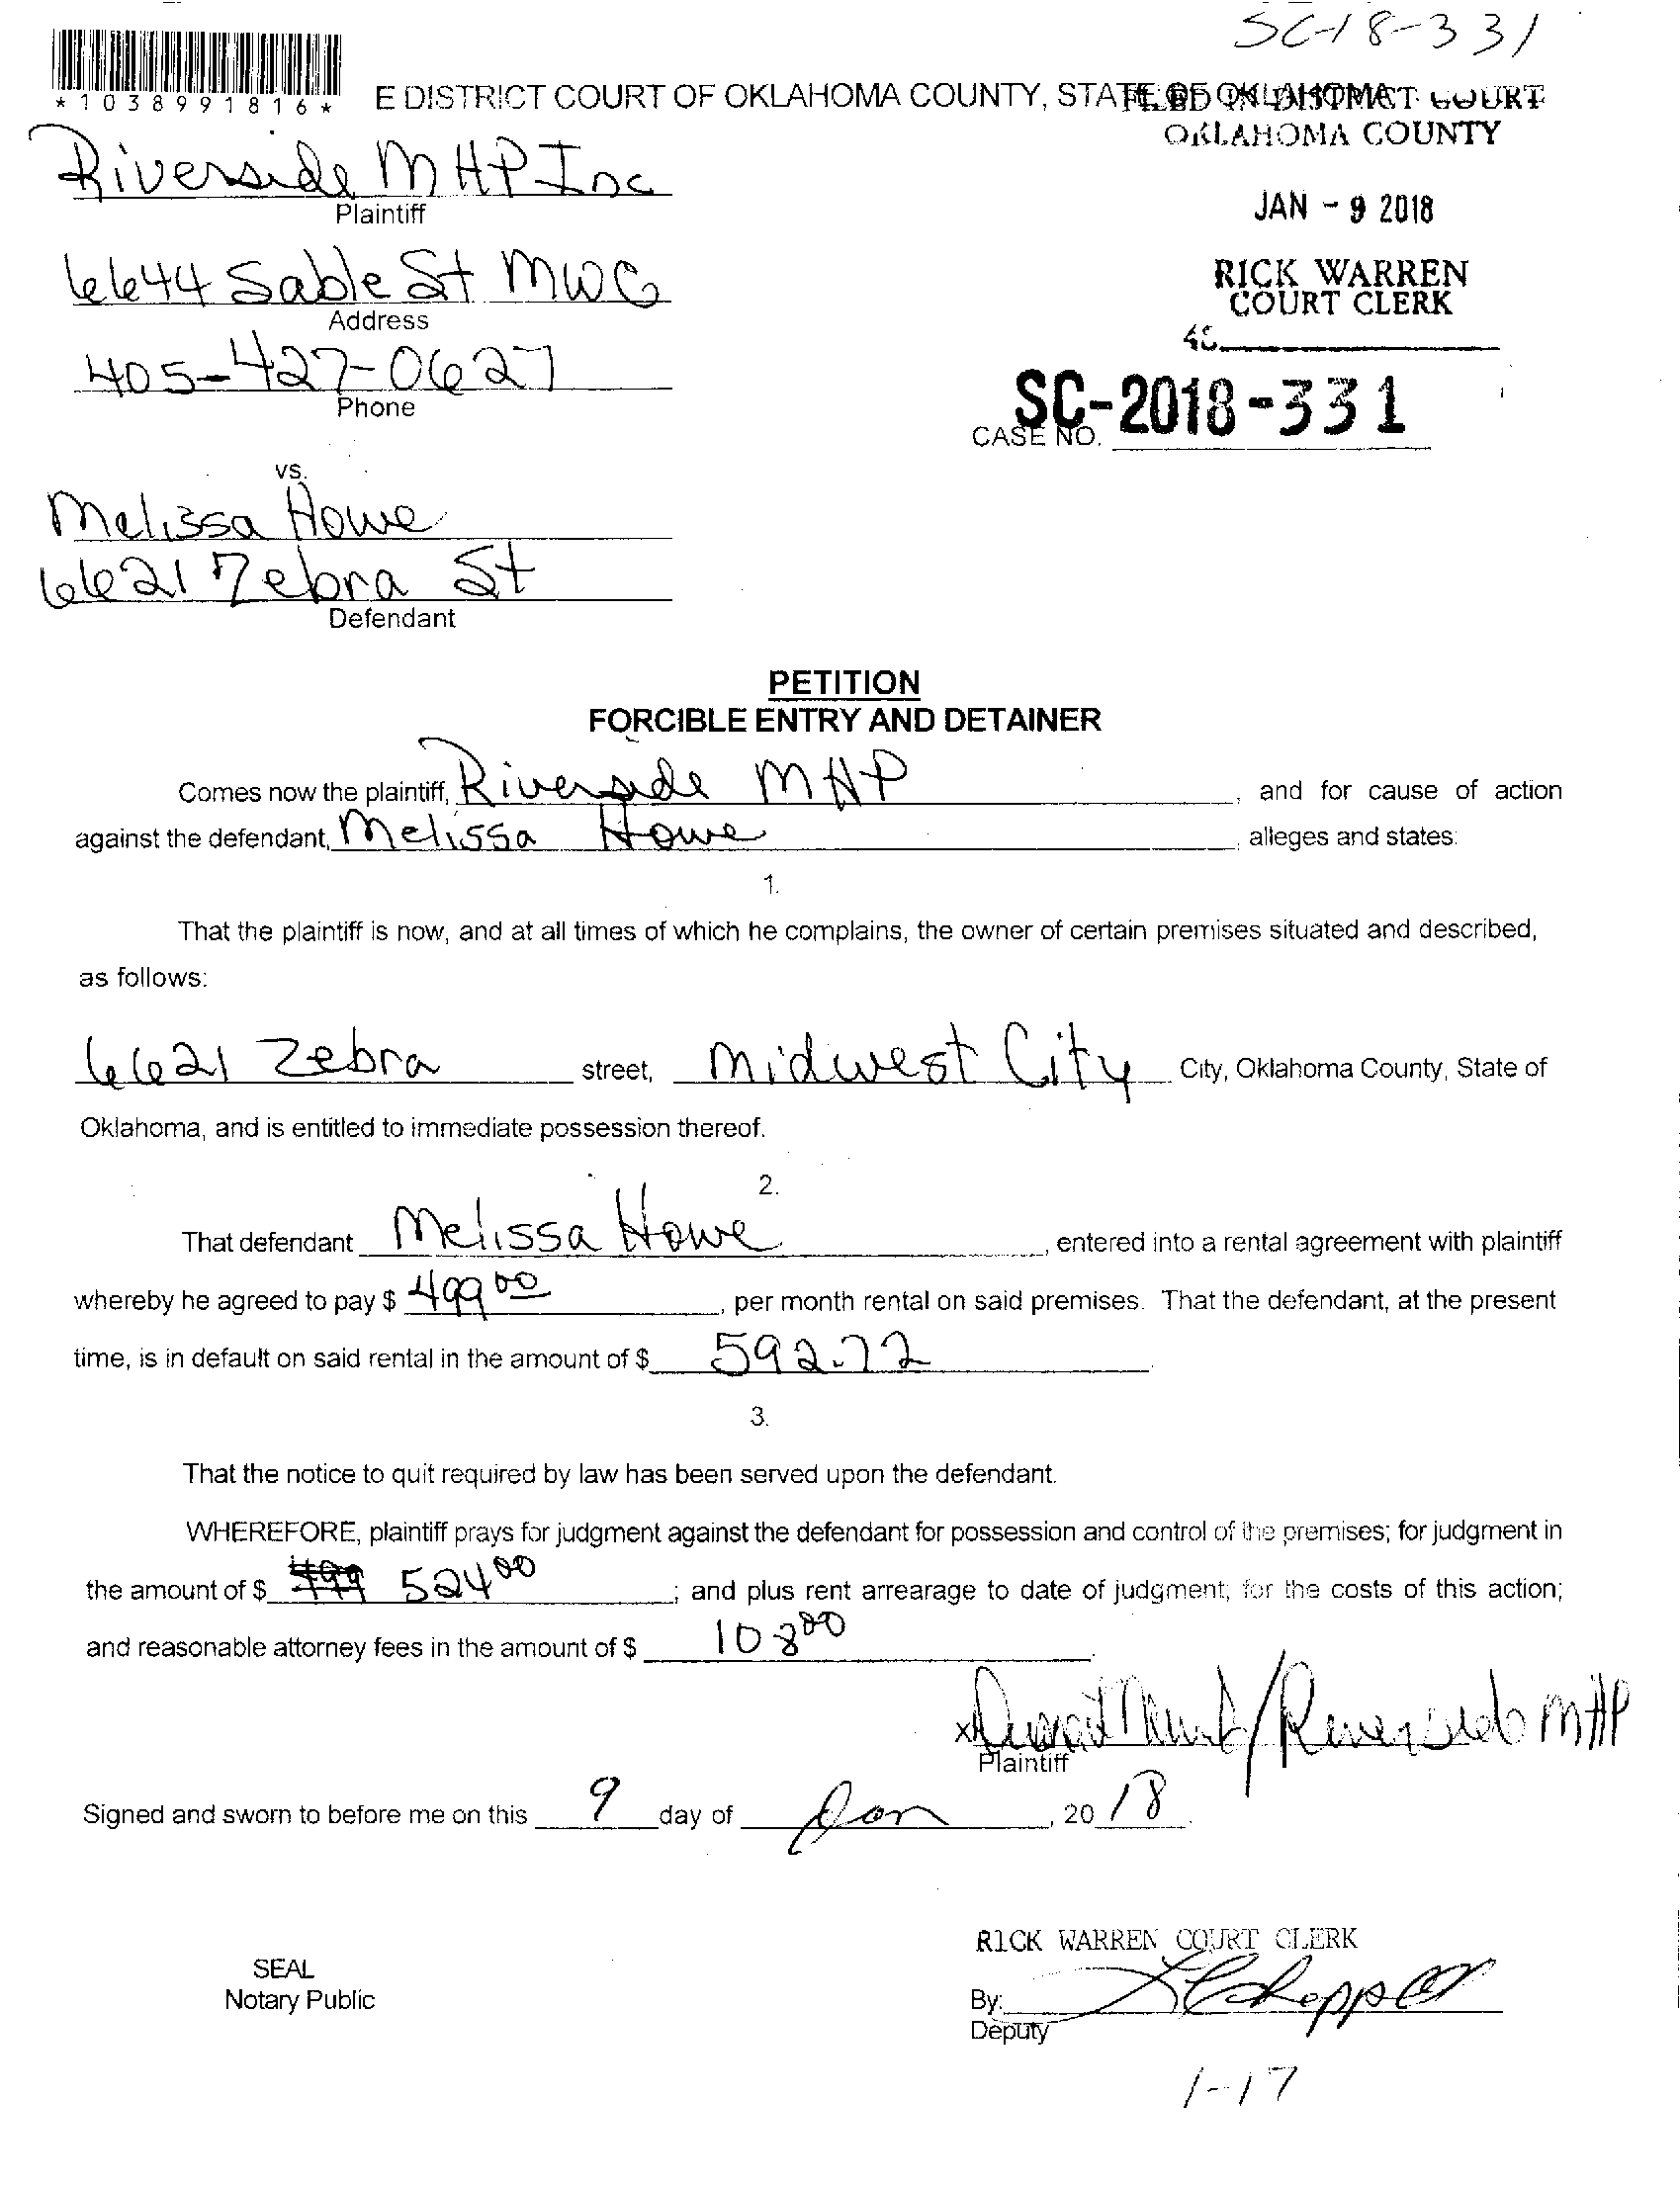 SC-18-331
*1038991816*
E DISTRICT COURT OF OKLAHOMA COUNTY, STATE OF OKLAHOMA
FILED IN DISTRICT COURT
OKLAHOMA COUNTY
JAN - 9 2018
RICK WARREN
COURT CLERK
Riverside MHP Inc
Plaintiff
6644 Sable St MWC
Address
405-427-0627
Phone
SC-2018-331
CASE NO.
vs.
Melissa Howe
6621 Zebra St
Defendant
PETITION
FORCIBLE ENTRY AND DETAINER
Comes now the plaintiff, Riverside MHP, and for cause of action
against the defendant, Melissa Howe, alleges and states:
1.
That the plaintiff is now, and at all times of which he complains, the owner of certain premises situated and described,
as follows:
6621 Zebra street, Midwest City City, Oklahoma County, State of
Oklahoma, and is entitled to immediate possession thereof.
2.
That defendant Melissa Howe, entered into a rental agreement with plaintiff
whereby he agreed to pay $ 499 00, per month rental on said premises. That the defendant, at the present
time, is in default on said rental in the amount of $ 592.72
3.
That the notice to quit required by law has been served upon the defendant.
WHEREFORE, plaintiff prays for judgment against the defendant for possession and control of the premises; for judgment in
the amount of $ 499 524 00; and plus rent arrearage to date of judgment; for the costs of this action;
and reasonable attorney fees in the amount of $ 108 00.
x / Riverside MHP
Plaintiff
Signed and sworn to before me on this 9 day of Jan, 20 18.
RICK WARREN COURT CLERK
SEAL
Notary Public
By:
Deputy
1-17